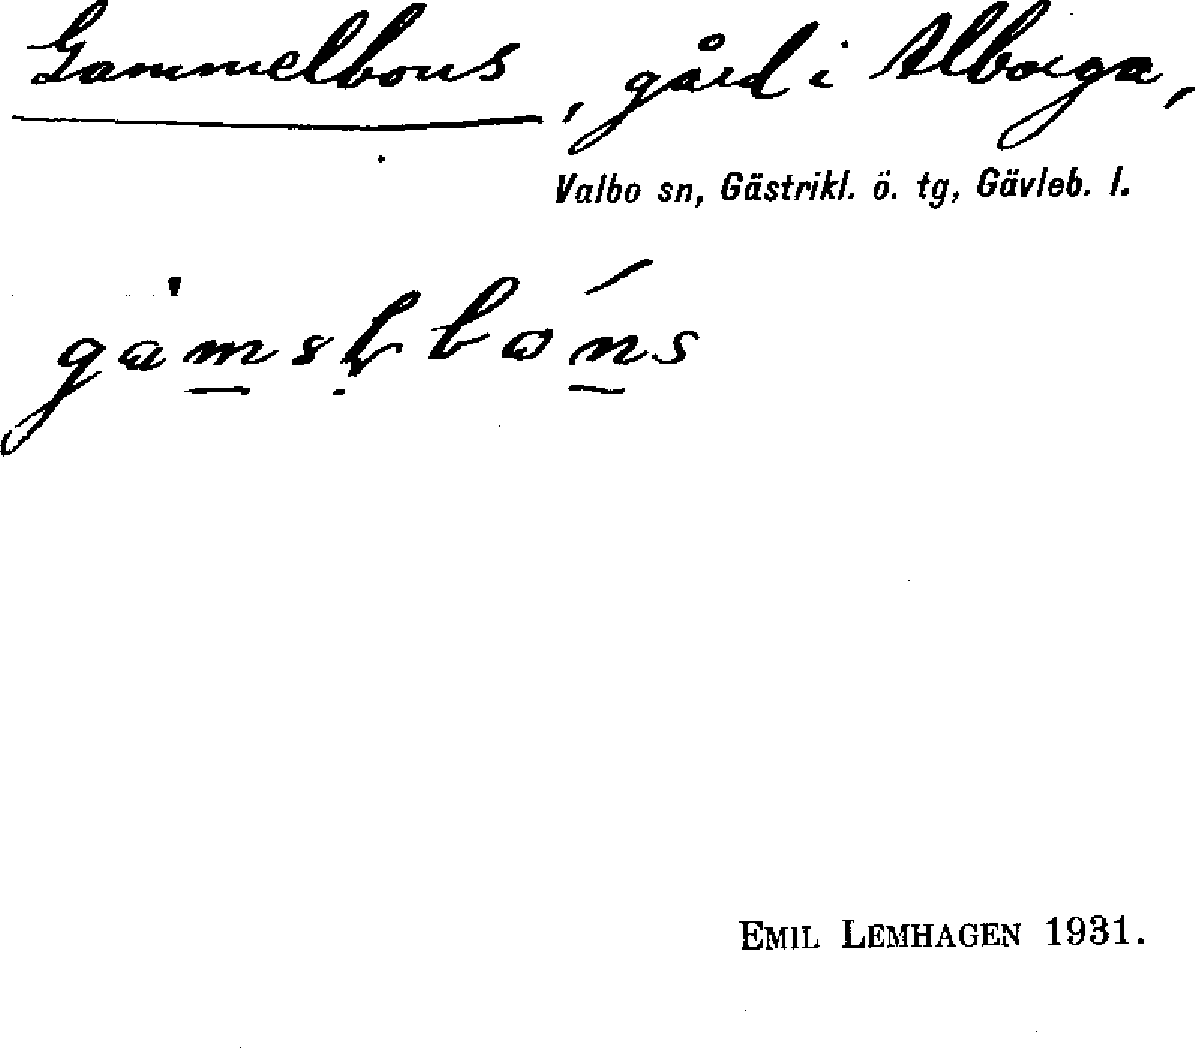 Gammelbons, gård i Alborga,
Valbo sn, Gästrikl. ö. tg, Gävleb. l.
EMIL LEMHAGEN 1931.